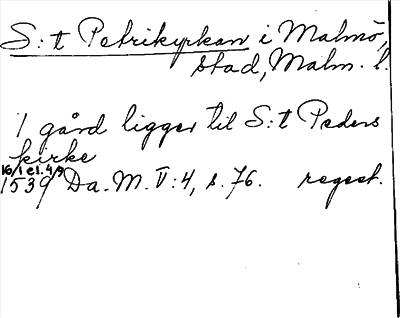 S:t Petrikyrkan i Malmö,
stad, Malm. l.
1 gård ligger til S:t Peders
kirke
16/1 el. 4/9
1539 Da. M. V:4, s. 76. regest.